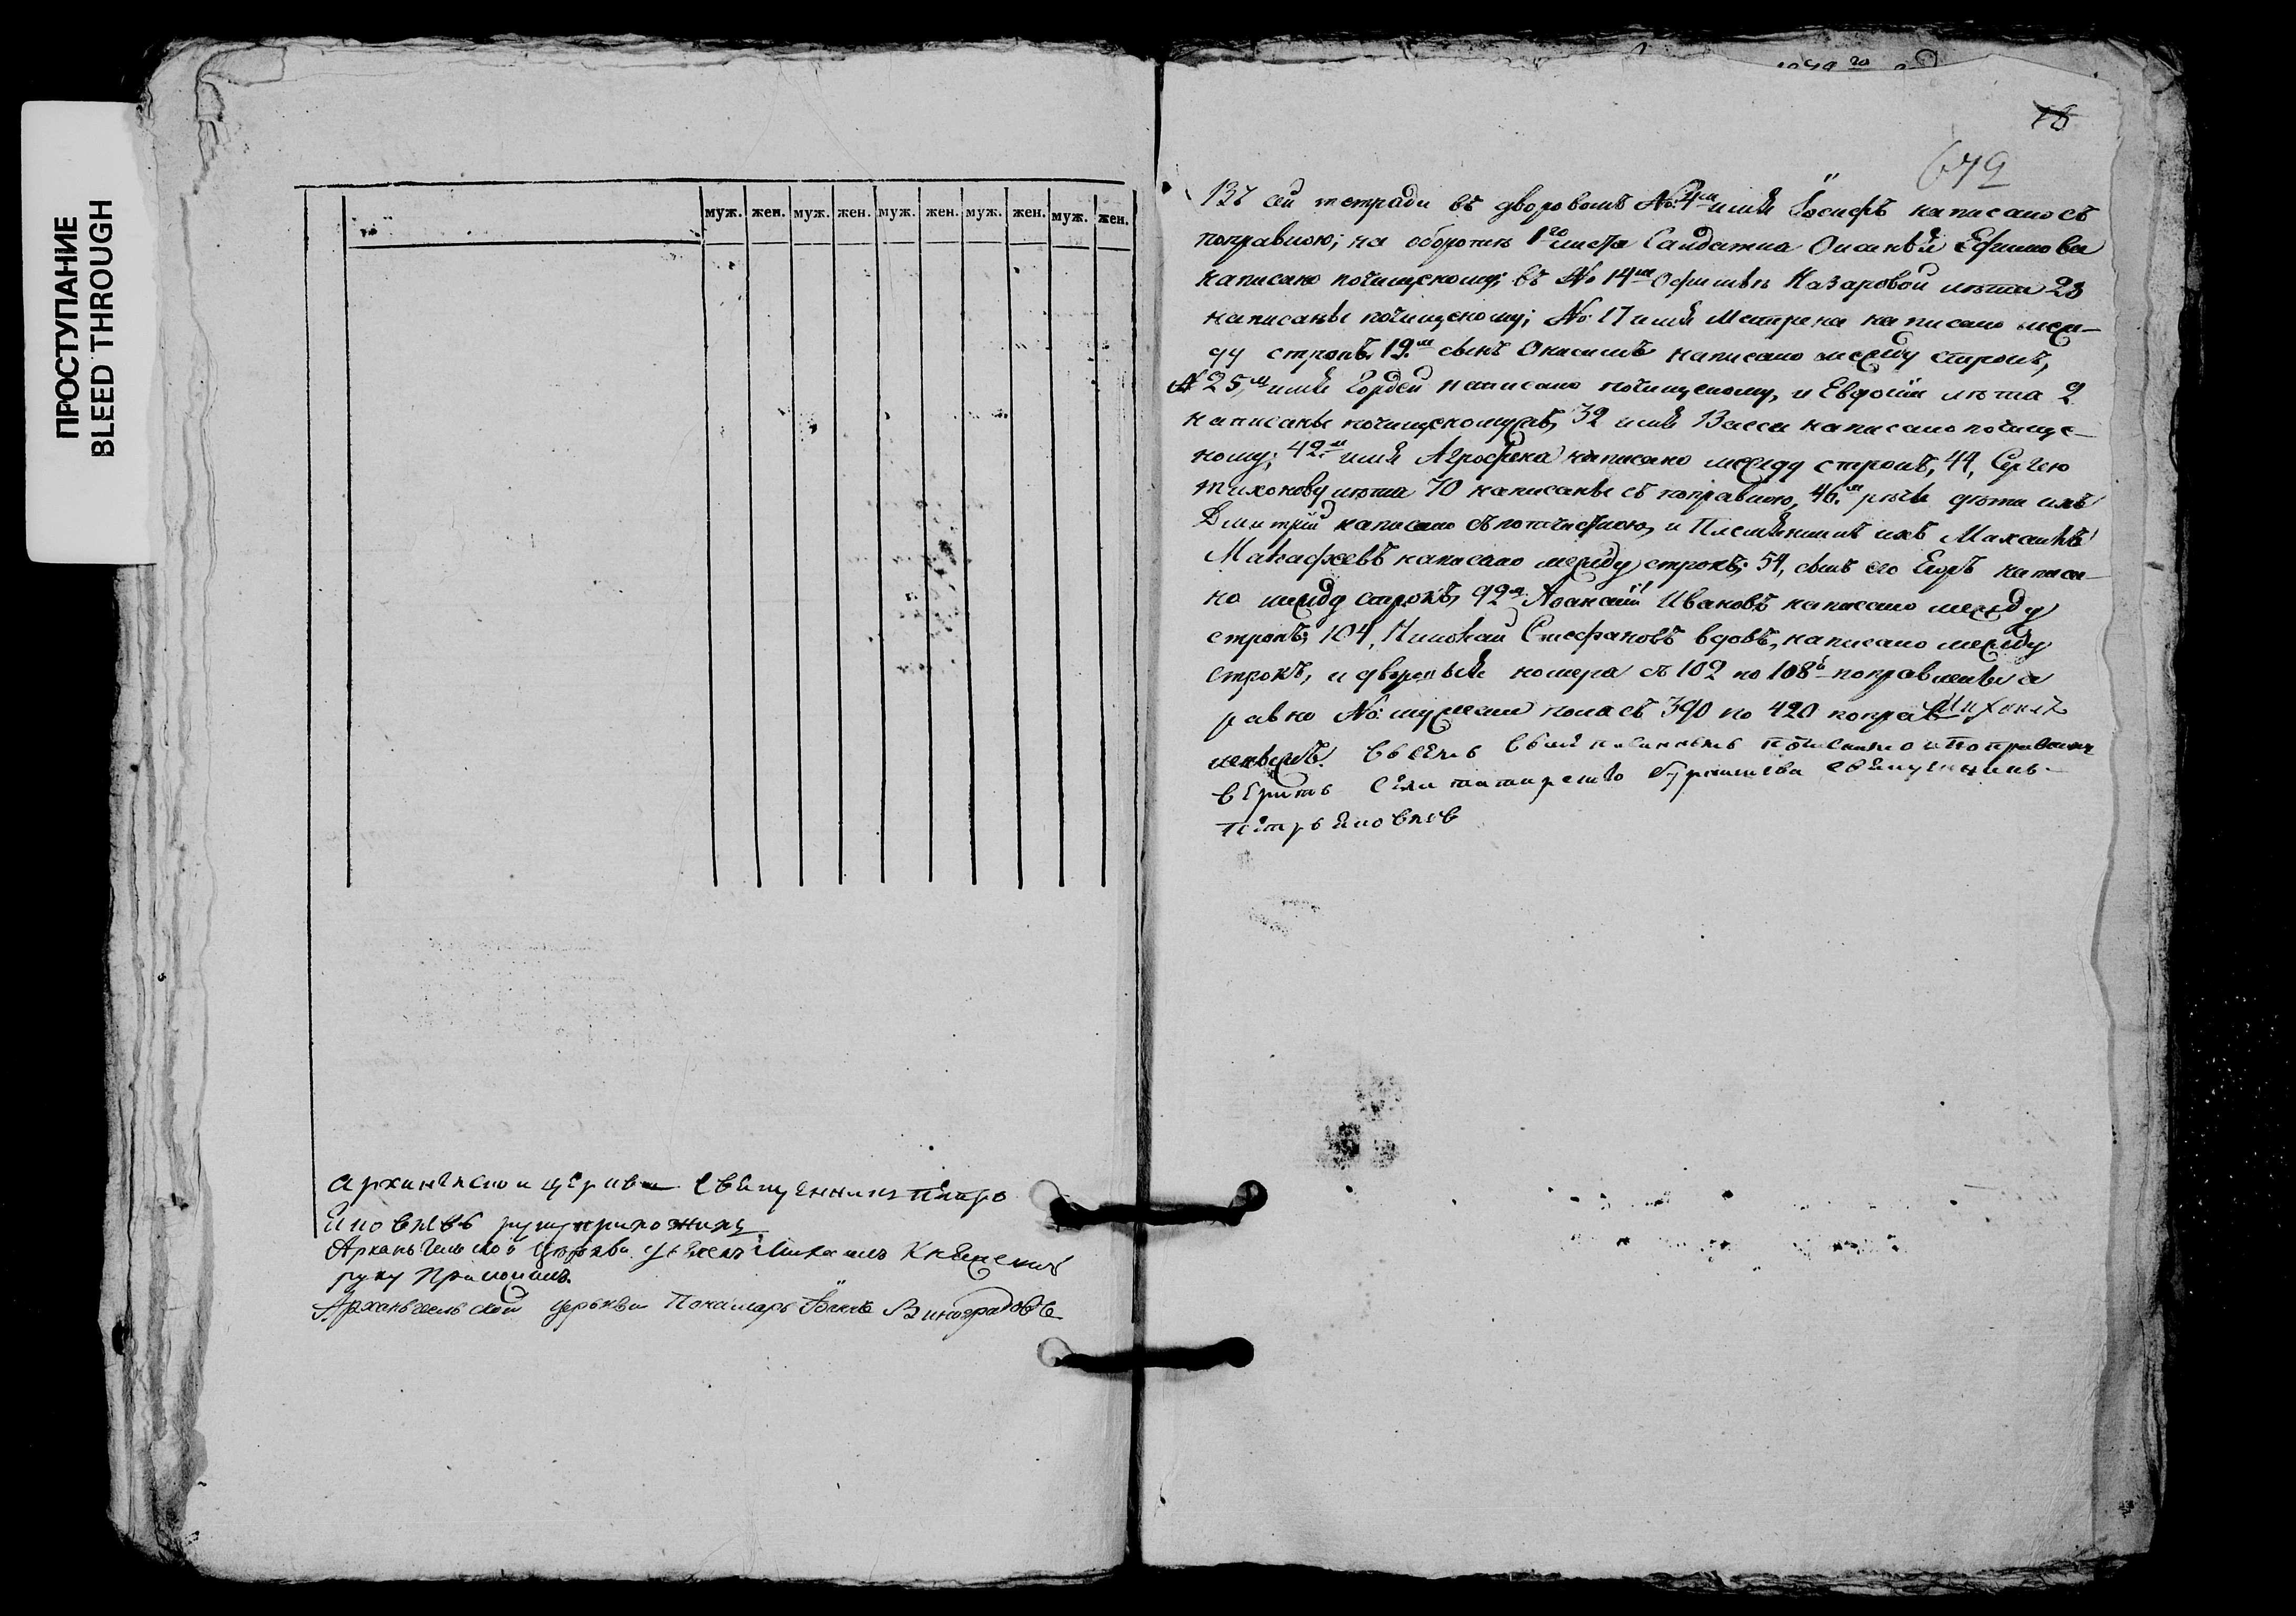 ПРОСТУПАНИЕ
BLEED THROUGH
муж. жен. муж. жен. муж. жен. муж. жен. муж. жен.
церкви священникъ петръ
руку приложилъ
Архангельской церкви Михаилъ
руку приложилъ
Архангельской церькви Понамарь Виноградовъ
18
Въ сей тетради въ дворовомъ №: 4м имя Іосифъ написано съ
поправкою; на оборотѣ 1го листа Салдатка Ефимова
написано почищеному; въ № 14м Офимьѣ Назаровой лѣта 28
написаны почищеному; №: 17 имя Матрена написано меж-
ду строкъ, 19.м сынъ Онисимъ написано между строкъ,
№ 25,м имя Гордей написано почищеному, и Евдокіи лѣта 2
написаны почищеномужъ, 32 имя Васса написано почище-
ному; 42.м имя Агрофена написано между строкъ, 44, Сергею
Тихонову лѣта 70 написаны съ поправкою, 46.м дѣти ихъ
Дмитрій написано съ и Племянникъ ихъ Михаилъ
написано между строкъ; 54, сынъ его Егоръ написа-
но между строкъ, 92м Аѳанасій Ивановъ написано между
строкъ; 104, Николай Стефановъ вдовъ, написано между
строкъ, и дворовыя номера съ 102 по 108й поправлены а
равно №: мужеска пола съ 390 по 420
въ семъ
вѣрить села священникъ
петръ